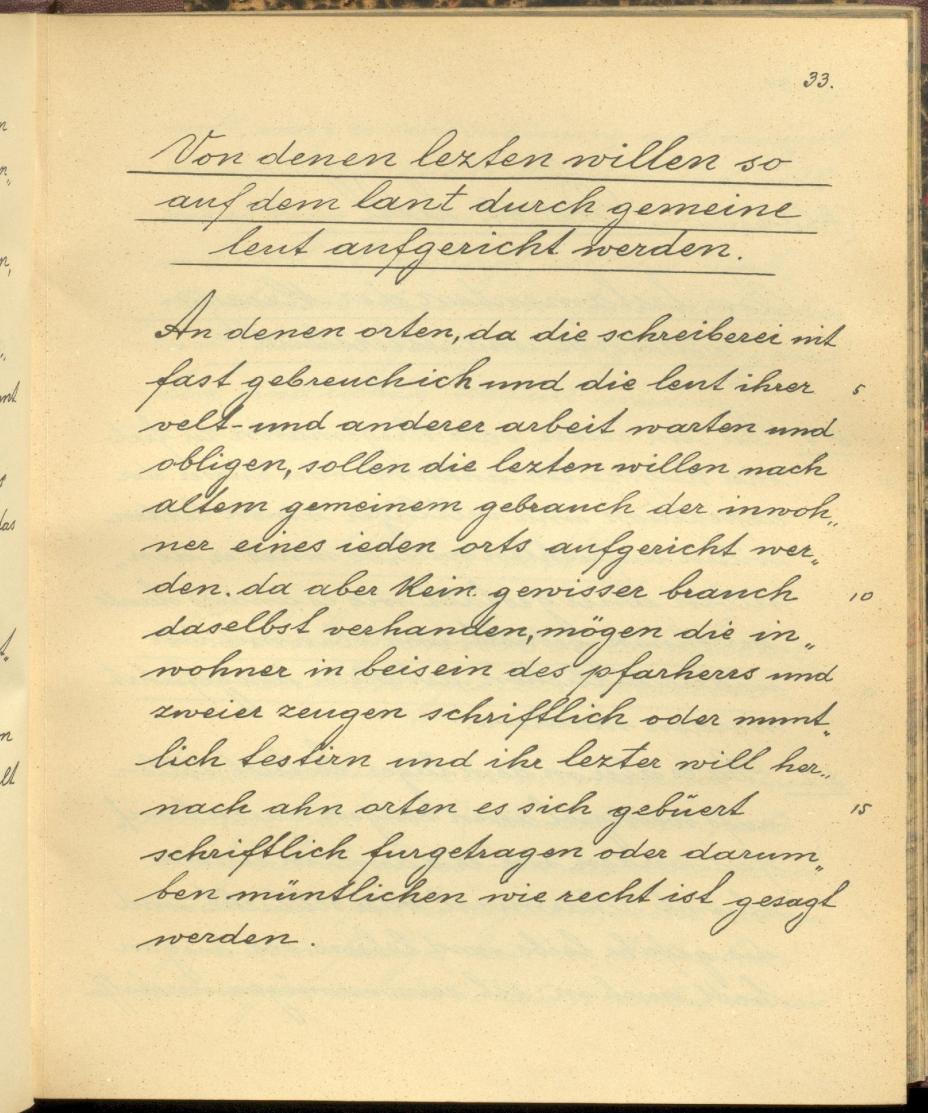 33.
Von denen lezten willen so
auf dem lant durch gemeine
leut aufgericht werden.
An denen orten, da die schreiberei nit
fast gebreuchich und die leut ihrer 5
velt- und anderer arbeit warten und
obligen, sollen die lezten willen nach
altem gemeinem gebrauch der inwoh„
ner eines ieden orts aufgericht wer„
den. da aber kein gewisser brauch 10
daselbst verhanden, mögen die in„
wohner in beisein des pfarherrs und
zweier zeugen schriftlich oder munt„
lich testirn und ihr lezter will her„
nach ahn orten es sich gebüert 15
schriftlich furgetragen oder darum„
ben müntlichen wie recht ist gesagt
werden.